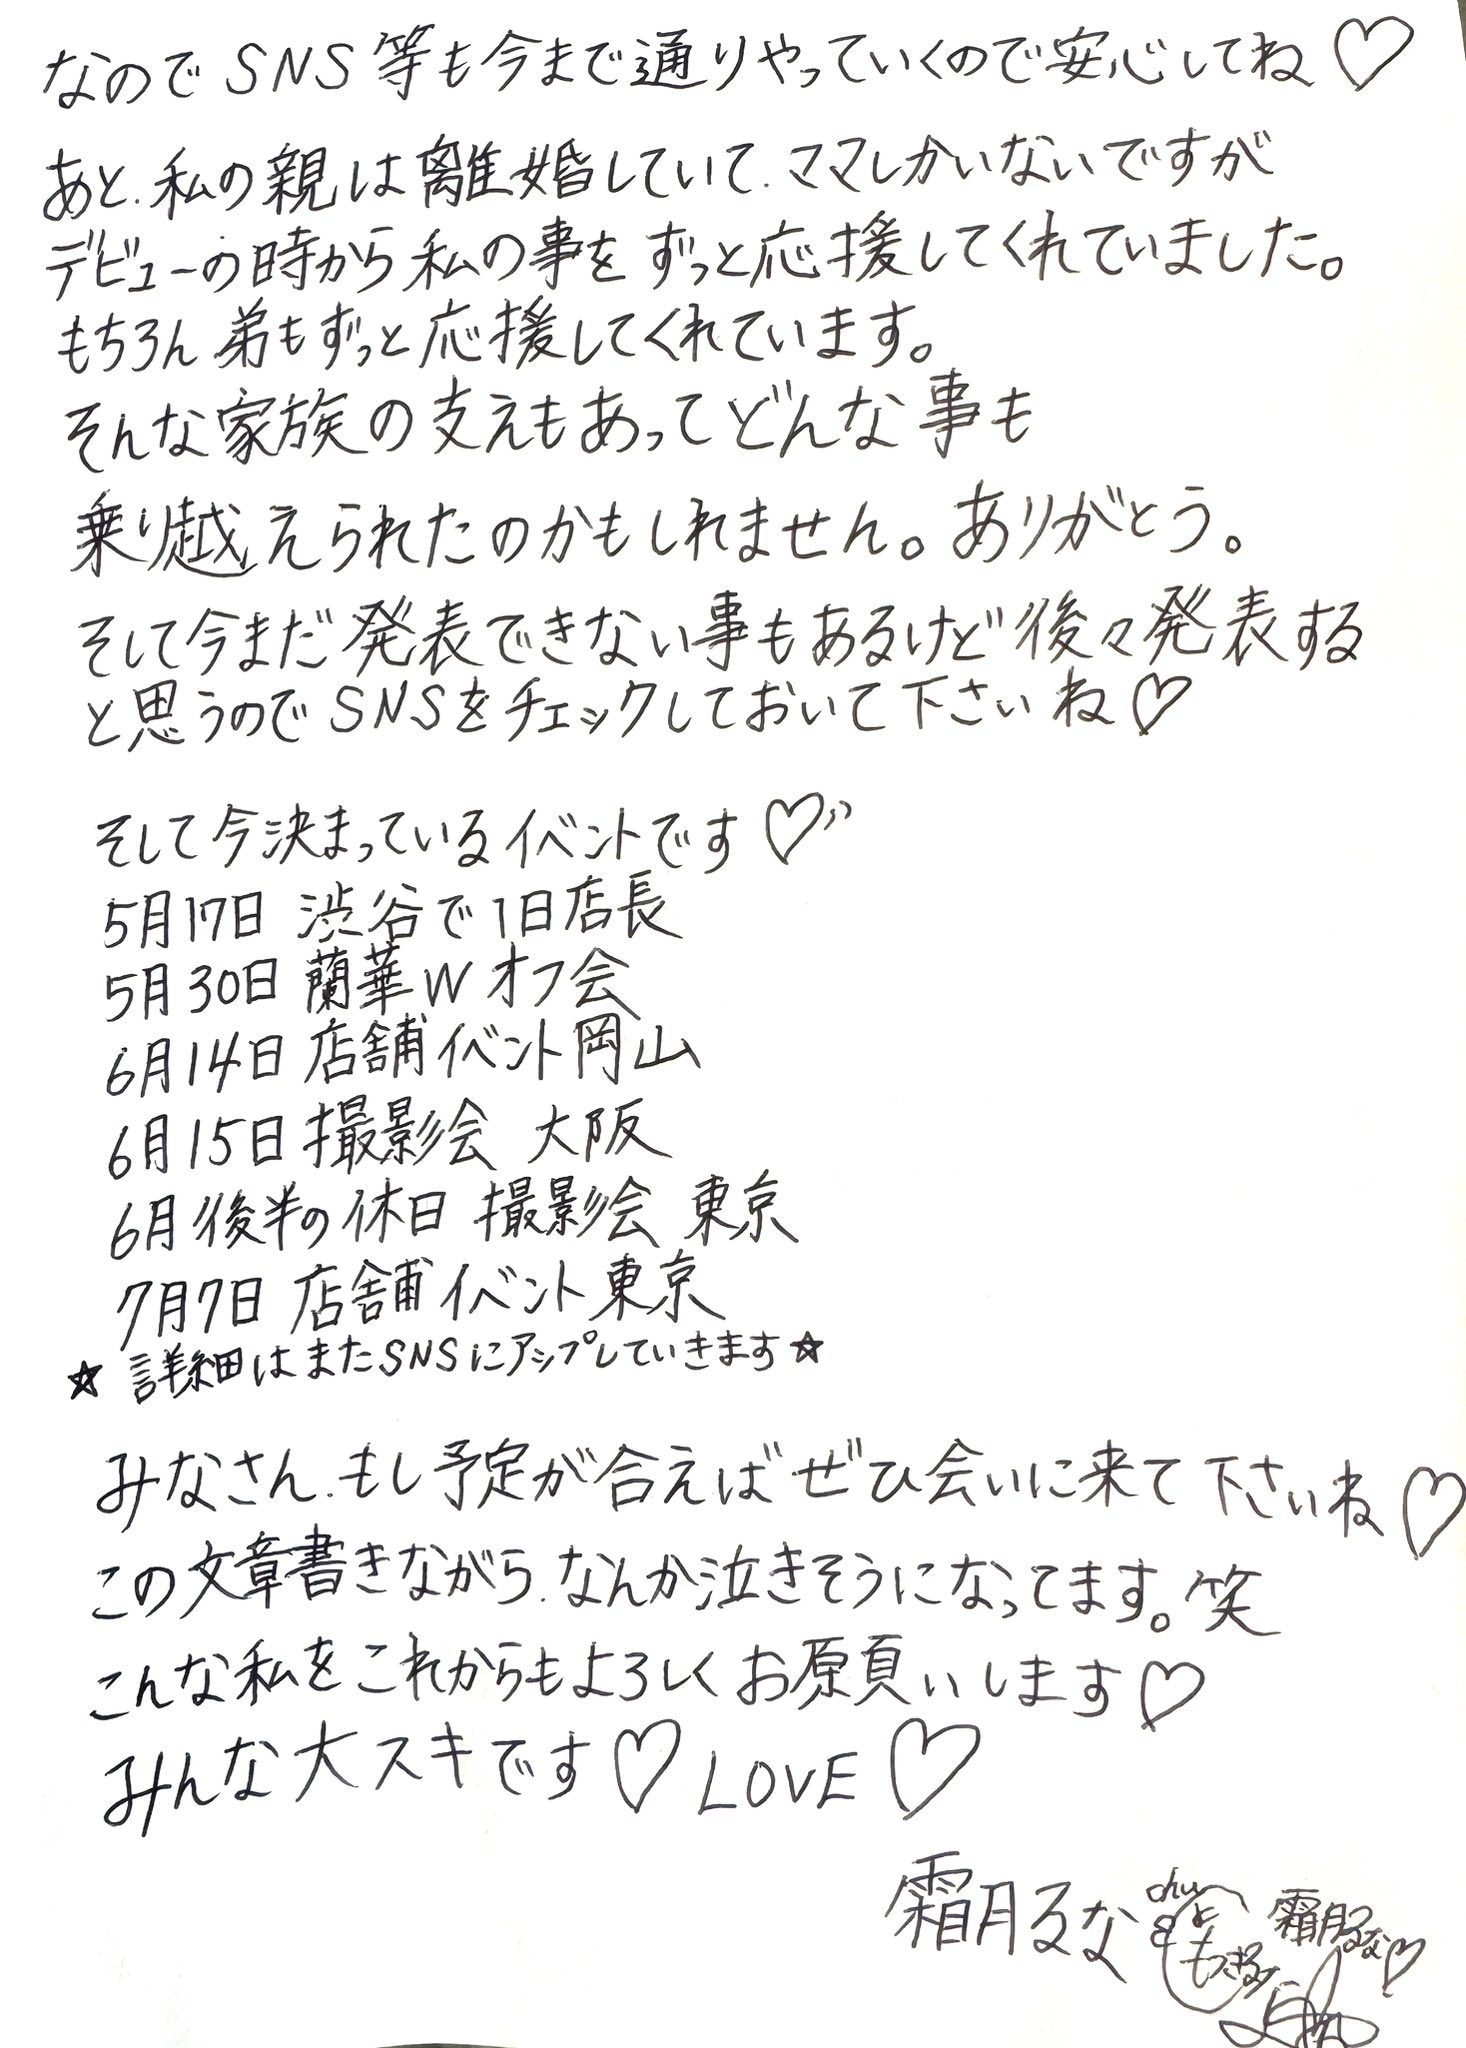 なのでSNS等も今まで通りやっていくので安心してね♡
あと、私の親は離婚していて、ママしかいないですが
デビューの時から私の事をずっと応援してくれていました。
もちろん弟もずっと応援してくれています。
そんな家族の支えもあってどんな事も
乗り越えられたのかもしれません。ありがとう。
そして今まだ発表できない事もあるけど後々発表する
と思うのでSNSをチェックしておいて下さいね♡
そして今決まっているイベントです♡
5月17日 渋谷で1日店長
5月30日 蘭華Wオフ会
6月14日 店舗イベント岡山
6月15日 撮影会 大阪
6月後半の休日 撮影会 東京
7月7日 店舗イベント東京
☆ 詳細はまたSNSにアップしていきます☆
みなさん、もし予定が合えばぜひ会いに来て下さいね♡
この文章書きながら、なんか泣きそうになってます。笑
こんな私をこれからもよろしくお願いします♡
みんな大スキです♡LOVE♡
霜月るな
chu
霜月るな♡